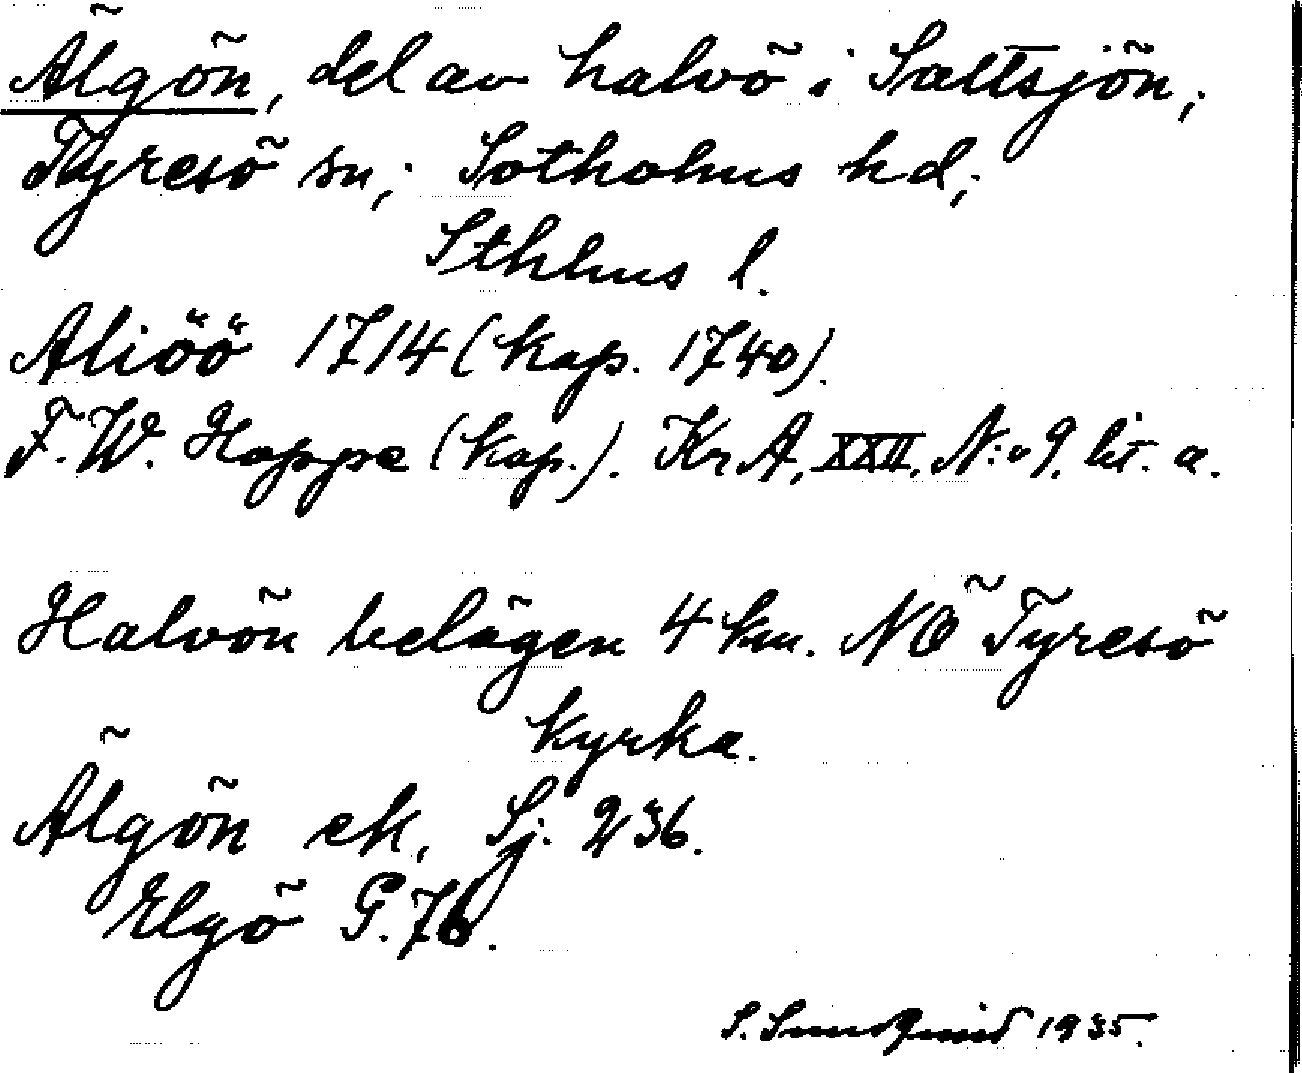 Älgön, del av halvö i Saltsjön;
Tyresö sn; Sotholms hd;
Sthlms l.
Aliöö 1714 (kop. 1740).
F. W. Hoppe (kop.). KrA, XXII, N:o 9. lit. a.
Halvön belägen 4 km. NÖ Tyresö
kyrka.
Älgön ek, Sj. 236.
Elgö G. 76.
S. Sundqvist 1935.